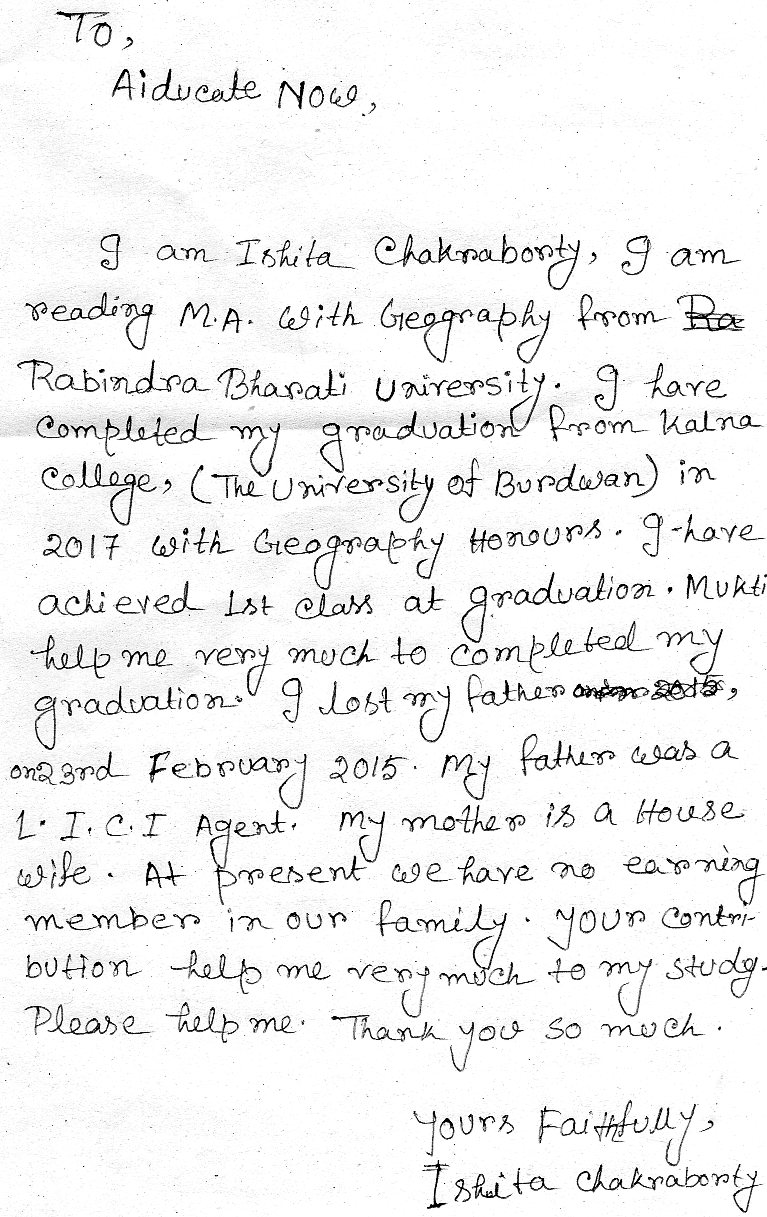 To,
Aiducate Now,
I am Ishita Chakraborty, I am
reading M.A. with Geography from Ra
Rabindra Bharati University. I have
completed my graduation from Kalna
College, (The University of Burdwan) in
2017 with Geography Honours. I have
achieved 1st class at graduation. Mukti
help me very much to completed my
graduation. I lost my father 2015,
on 23rd February 2015. My father was a
L.I.C.I Agent. My mother is a House
wife. At present we have no earning
member in our family. Your contri-
bution help me very much to my study.
Please help me. Thank you so much.
Yours Faithfully,
Ishita Chakraborty